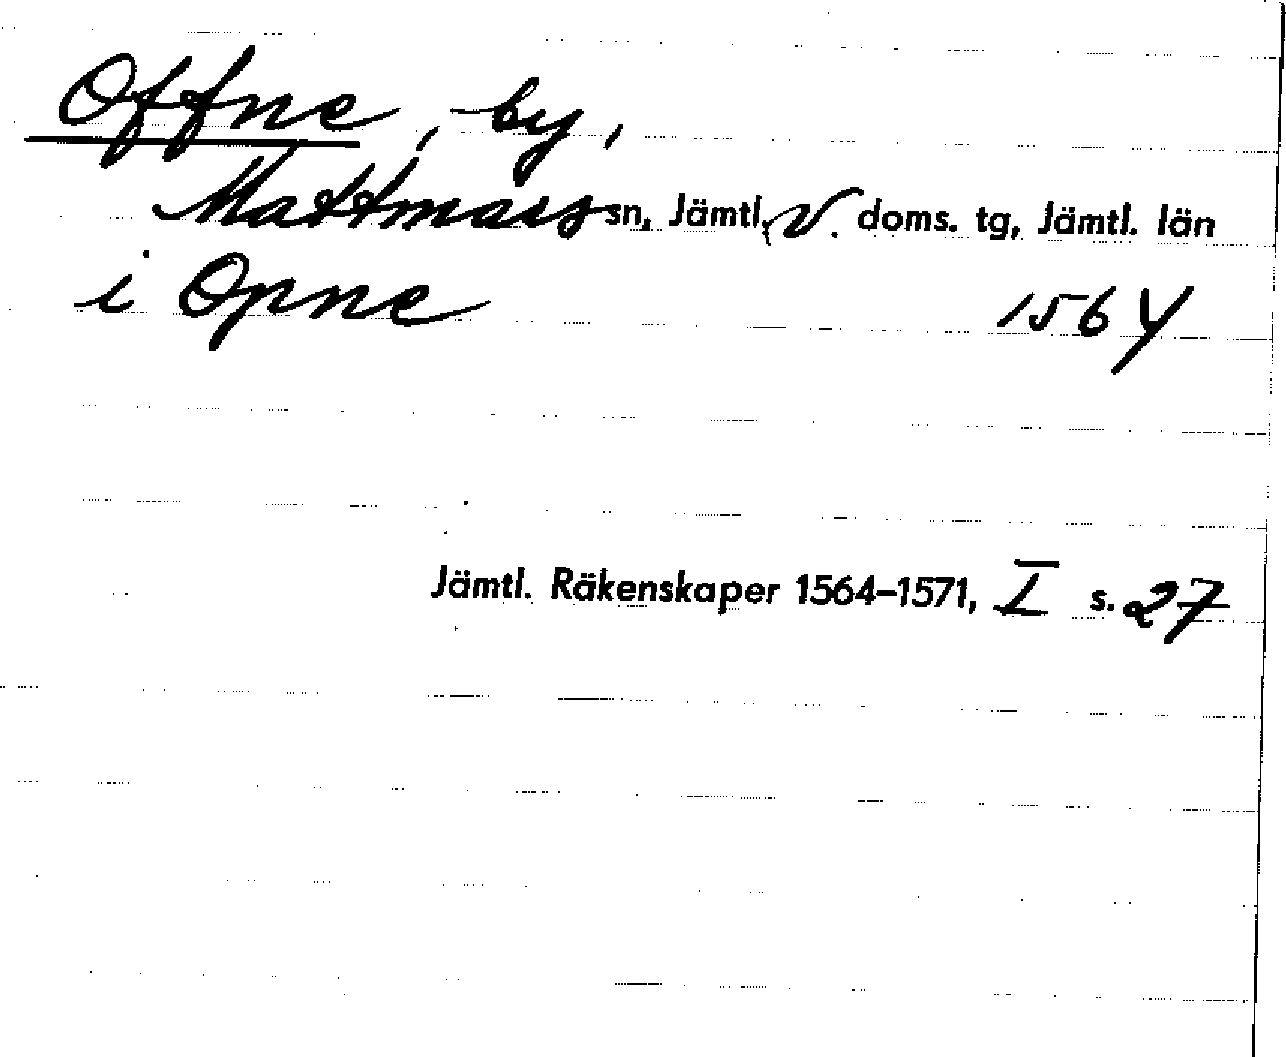 Offne, by,
Mattmars sn, Jämtl, V. doms. tg, Jämtl. län
i Opne 1564
Jämtl. Räkenskaper 1564–1571, I s. 27